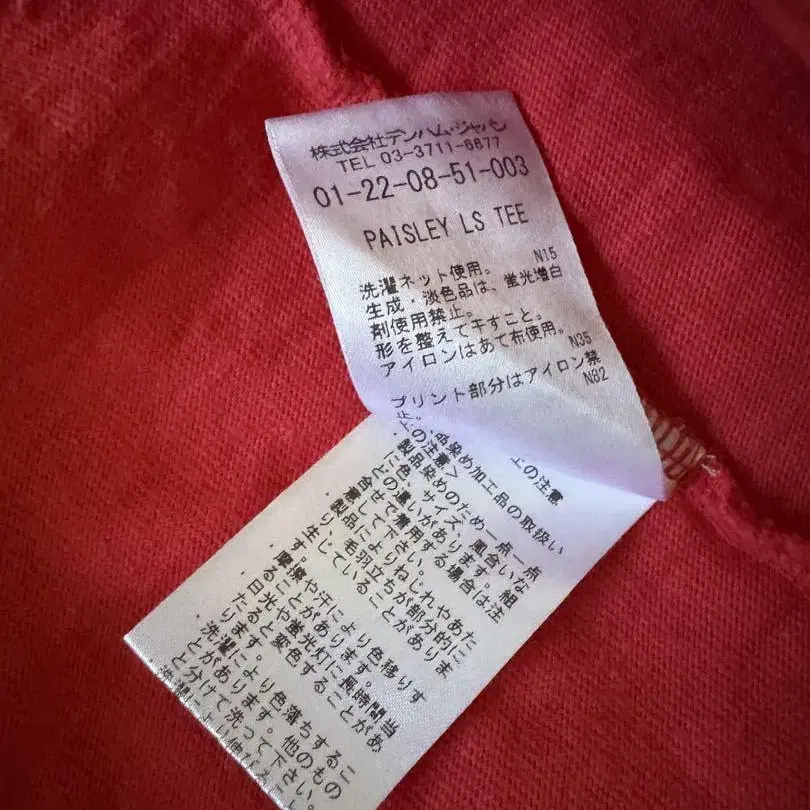 株式会社デンハム・ジャパン
TEL 03-3711-6677
01-22-08-51-003
PAISLEY LS TEE
N15
洗濯ネット使用。
生成・淡色品は、蛍光増白
剤使用禁止。
形を整えて干すこと。
アイロンはあて布使用。
N35
プリント部分はアイロン禁
止。
N82
上の注意
品染め加工品の取扱い
上の注意>
・製品染めのため一点一点
に色・サイズ、風合いな
どの違いがあります。組
合せで着用する場合は注
意して下さい。
・製品によりねじれやあた
り、毛羽立ちが部分的に
生じていることがありま
す。
・摩擦や汗により色移りす
ることがあります。
・日光や蛍光灯に長時間当
たると変色することがあ
ります。
・洗濯により色落ちするこ
とがあります。他のもの
と分けて洗って下さい。